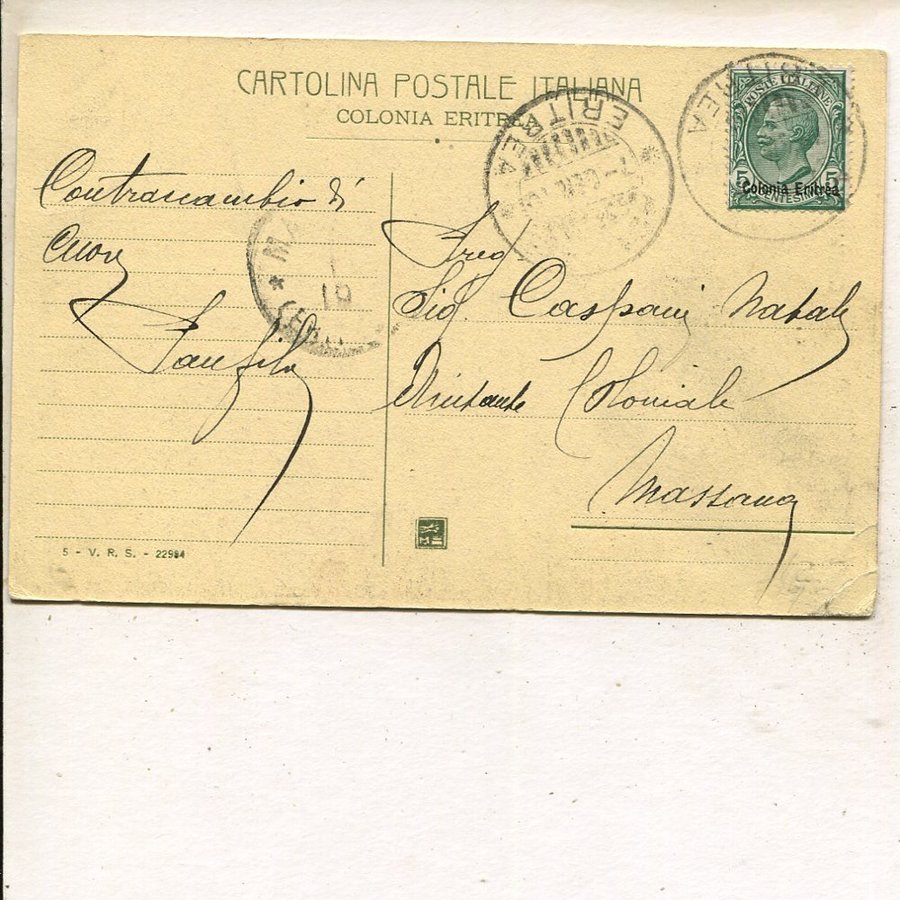 CARTOLINA POSTALE ITALIANA
COLONIA ERITREA
POSTE ITALIANE
5 5
CENTESIMI
Colonia Eritrea
ERITREA
ERITREA
Contraccambio di
cuore
Panfilo
Preg
Sig. Caspani Natale
Aiutante Coloniale
Massaua
5 - V. R. S. - 22984